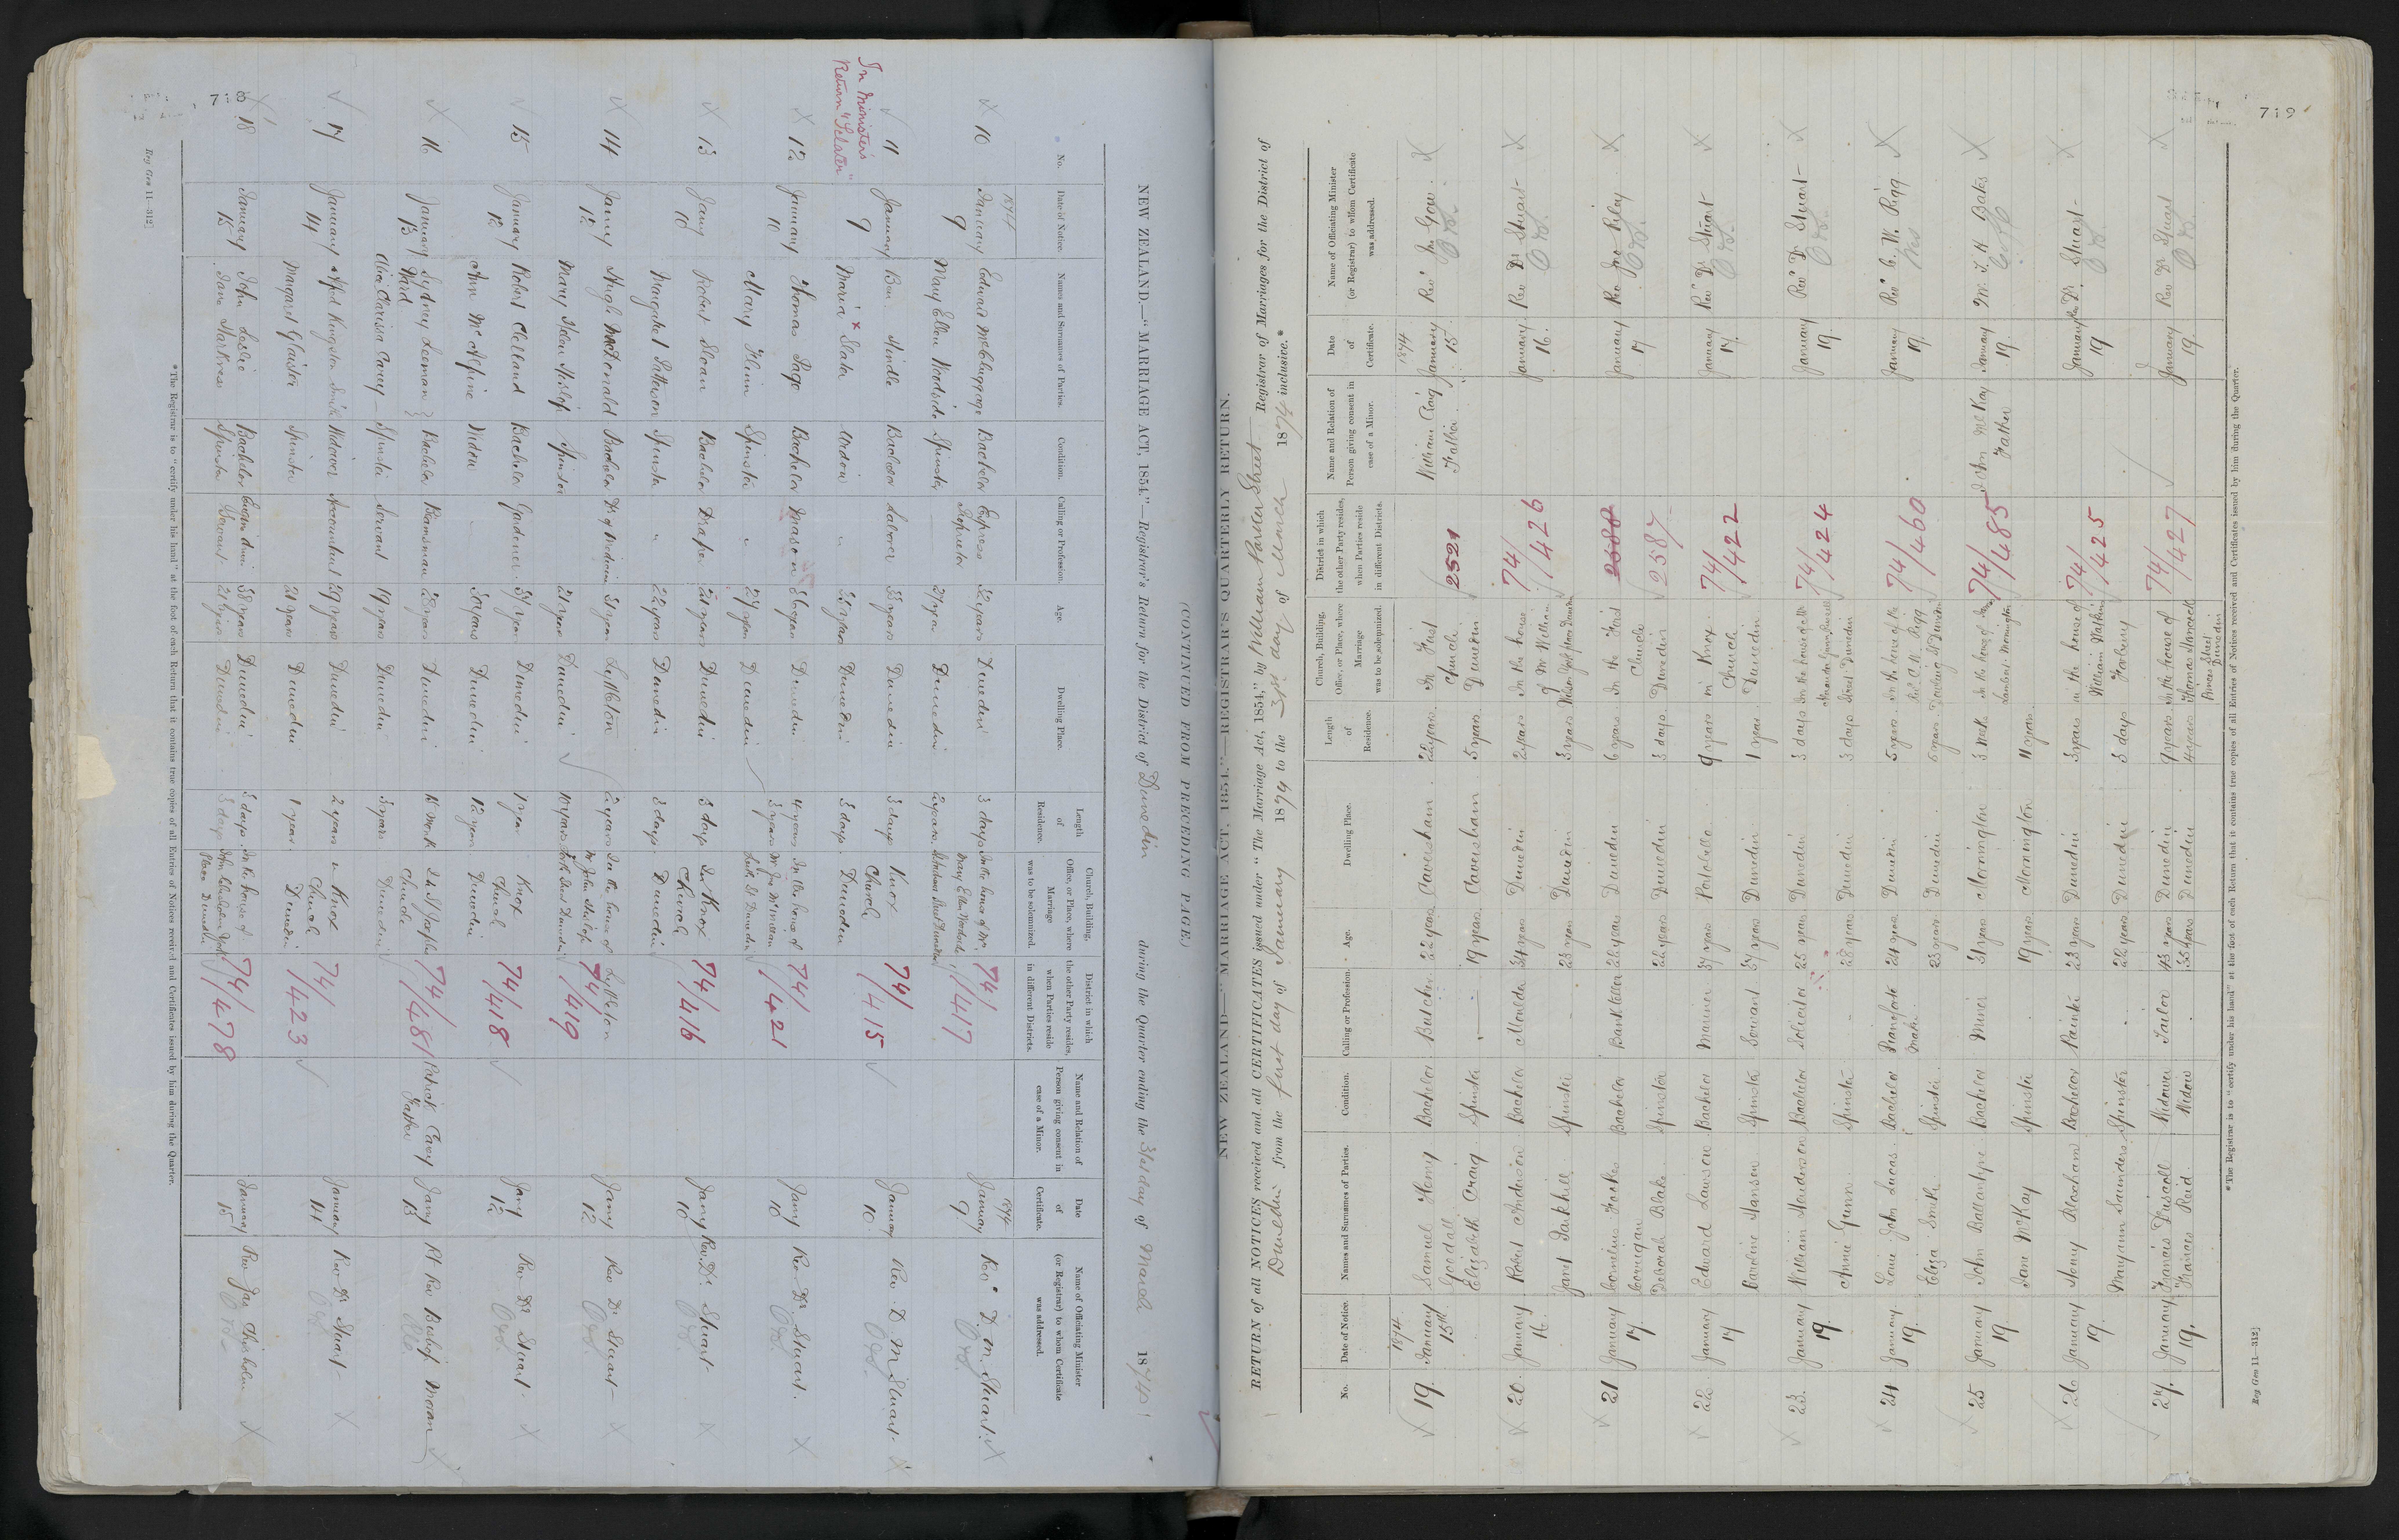 718
NEW ZEALAND.—"MARRIAGE ACT, 1854."—Registrar's Return for the District of Dunedin during the Quarter ending the 31st day of March 1874
No.
Date of Notice.
Names and Surnames of Parties.
Condition.
Calling or Profession.
Age.
Dwelling Place.
Length of Residence.
Church, Building, Office, or Place, where Marriage was to be solemnized.
the other Party resides, when Parties reside in different Districts.
Name and Relation of Person giving consent in case of a Minor.
Date of Certificate.
Name of Officiating Minister (or Registrar) to whom Certificate was addressed.
1874 1874
10 January 9 Edward McCluggage Bachelor Express Proprietor 32 years Dunedin 3 days In the house of Mrs 74/417 January 9 Revd D. M. Stuart
Mary Ellen Woodside Spinster 27 years Dunedin 2 years
11 January 9 Ben Hindle Bachelor Laborer 33 years Dunedin 3 days Knox Church Dunedin 74/415 January 10 Rev D M Stuart
Maria x Slater Widow " 32 years Dunedin 3 days
In Minister's Return "Sclater"
12 January 10 Thomas Page Bachelor Mason 36 years Dunedin 4 years In the house of Mr McMillan 74/421 Jany 10 Rev Dr Stuart
Mary Flinn Spinster " 27 years Dunedin 3 years Leith St Dunedin
13 Jany 10 Robert Sloan Bachelor Draper 21 years Dunedin 3 days In Knox Church Dunedin 74/416 Jany 10 Rev. Dr Stuart
Margaret Patterson Spinster " 22 years Dunedin 3 days
14 Jany 12 Hugh McDonald Bachelor Dr of Medicine 31 years Lyttleton 2 years In the house of Mr John Hislop Lyttleton 74/419 Jany 12 Rev Dr Stuart
Mary Helen Hislop Spinster 21 years Dunedin 10 years
15 January 12 Robert Clelland Bachelor Gardener 31 years Dunedin 1 year Knox Church Dunedin 74/418 Jany 12 Rev Dr Stuart
Ann McAlpine Widow 30 years Dunedin 12 years
16 January 13 Sydney Leeman Ward Bachelor 28 years Dunedin 1 Week In St Josephs Church Dunedin 74/481 Patrick Carey Father Jany 13 Rt Rev Bishop Moran
Alice Clarissa Carey Spinster Servant 19 years Dunedin 3 years
17 January 14 Alfred Kingston Smith Widower Accountant 29 years Dunedin 2 years in Knox Church Dunedin 74/423 January 14 Rev Dr Stuart
Margaret Glaister Spinster 21 years Dunedin 1 year
18 January 15 John Leslie Bachelor Engine driver 38 years Dunedin 3 days In the house of 74/478 January 15 Rev Jas Chisholm
Jane Harkness Spinster Servant 21 years Dunedin 3 days Place Dunedin
* The Registrar is to "certify under his hand" at the foot of each Return that it contains true copies of all Entries of Notices received and Certificates issued by him during the Quarter.
Reg Gen 11—312]
(CONTINUED FROM PRECEDING PAGE.)
719
NEW ZEALAND—"MARRIAGE ACT, 1854."—REGISTRAR'S QUARTERLY RETURN.
RETURN of all NOTICES received and all CERTIFICATES issued under "The Marriage Act, 1854," by William Parker Street Registrar of Marriages for the District of
Dunedin from the first day of January 1874 to the 31st day of March 1874 inclusive.*
No.
Date of Notice.
Names and Surnames of Parties.
Condition.
Calling or Profession.
Age.
Dwelling Place.
Length of Residence.
Church, Building, Office, or Place, where Marriage was to be solemnized.
District in which the other Party resides, when Parties reside in different Districts.
Name and Relation of Person giving consent in case of a Minor.
Date of Certificate.
Name of Officiating Minister (or Registrar) to whom Certificate was addressed.
1874 1874
19. January 15th Samuel Henry Goodall Bachelor Butcher 22 years Caversham 22 years In First Church Dunedin 2521 William Craig Father January 15. Revd Gow
Elizabeth Craig Spinster 19 years Caversham 5 years
20. January 16. Robert Anderson Bachelor Moulder 34 years Dunedin 2 years In the house of Mr William 74/426 January 16. Rev Dr Stuart
Janet Parkhill Spinster 23 years Dunedin 3 years
21 January 17. Cornelius Corrigan Bachelor Bank teller 22 years Dunedin 6 years In the First Church Dunedin 2588 2587 January 17 Rev Riley
Deborah Blake Spinster 22 years Dunedin 3 days
22. January 17 Edward Lawson Bachelor Mariner 37 years Portobello 9 years in Knox Church Dunedin 74/422 January 17. Revd Dr Stuart
Caroline Hansen Spinster Servant 37 years Dunedin 1 year
23. January 19. William Henderson Bachelor Solicitor 25 years Dunedin 3 days In the house of Street Dunedin 74/424 January 19. Revd Dr Stuart
Annie Gunn Spinster 28 years Dunedin 3 days
24 January 19. Louis John Lucas Bachelor Pianoforte Maker 24 years Dunedin 5 years In the house of the Revd C. W. Rigg Dowling St Dunedin 74/460 January 19. Revd C. W. Rigg
Eliza Smith Spinster 23 years Dunedin 6 years
25 January 19. John Ballantyne Bachelor Miner 31 years Mornington 3 weeks In the house of Mornington 74/485 John McKay Father January 19. Mr T. H. Bates
Jane McKay Spinster 19 years Mornington 11 years
26 January 19. Henry Blacham Bachelor Painter 23 years Dunedin 3 years in the house of William Watkins Forbury 74/425 January 19 Rev Dr. Stuart
Maryann Saunders Spinster 22 years Dunedin 3 days
27. January 19. Francis Driscoll Widower Tailor 43 years Dunedin 9 years in the house of Thomas Hancock Street Dunedin 74/427 January 19. Rev Dr Stuart
Frances Reid Widow 35 years Dunedin 4 years
* The Registrar is to "certify under his hand" at the foot of each Return that it contains true copies of all Entries of Notices received and Certificates issued by him during the Quarter.
Reg Gen 11—312]